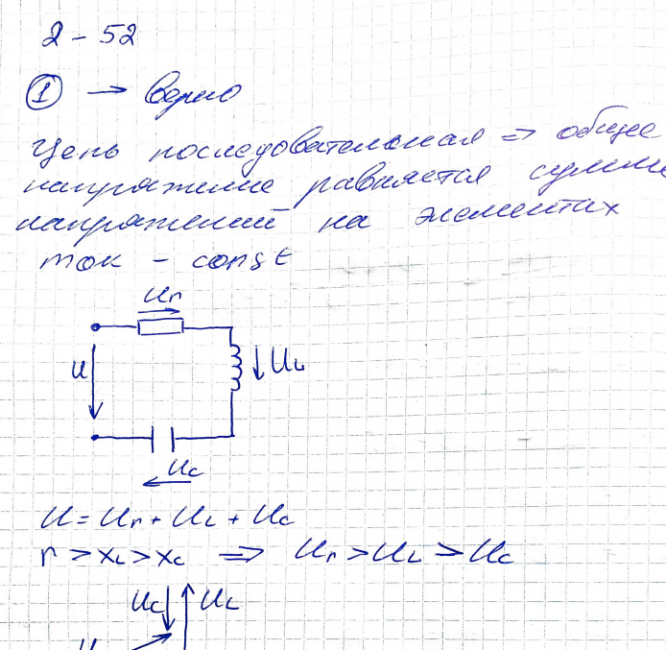 2 - 52
① → верно
Цепь последовательная => общее
напряжение равняется сумме
напряжений на элементах
ток - const
Ur
U
UL
Uc
U = Ur + UL + Uc
r > xL > xc => Ur > UL > Uc
Uc UL
U